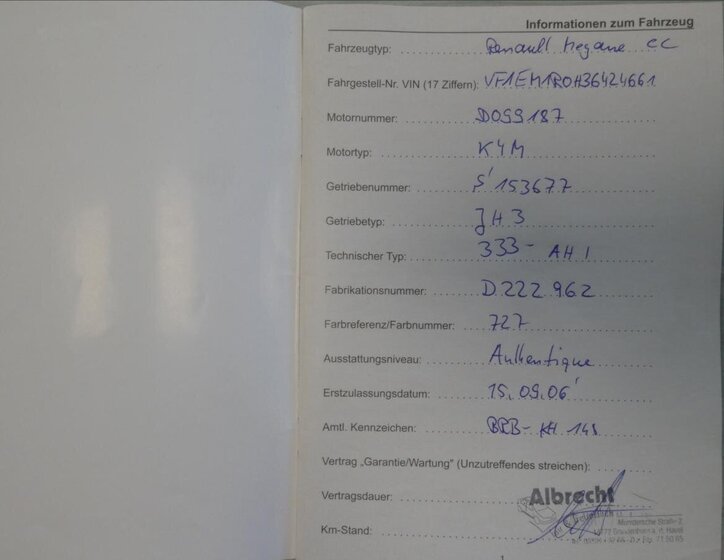 Informationen zum Fahrzeug
Fahrzeugtyp: Renault Megane CC
Fahrgestell-Nr. VIN (17 Ziffern): VF1EM1R0H36424661
Motornummer: D099187
Motortyp: K4M
Getriebenummer: S'153677
Getriebetyp: JH3
Technischer Typ: 333- AH1
Fabrikationsnummer: D222962
Farbreferenz/Farbnummer: 727
Ausstattungsniveau: Authentique
Erstzulassungsdatum: 15.09.06'
Amtl. Kennzeichen: BRB-KH 148
Vertrag „Garantie/Wartung" (Unzutreffendes streichen):
Vertragsdauer: Albrecht
Km-Stand:
1